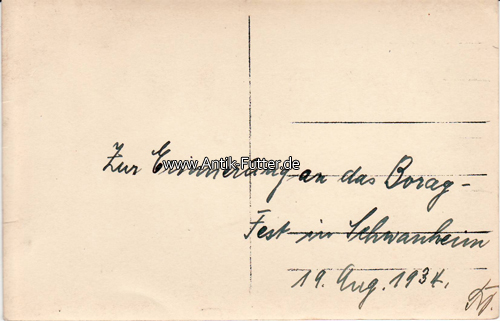 Zur Erinnerung an das Borag-
www.Antik-Futter.de
Fest in Schwanheim
19. Aug. 1934.